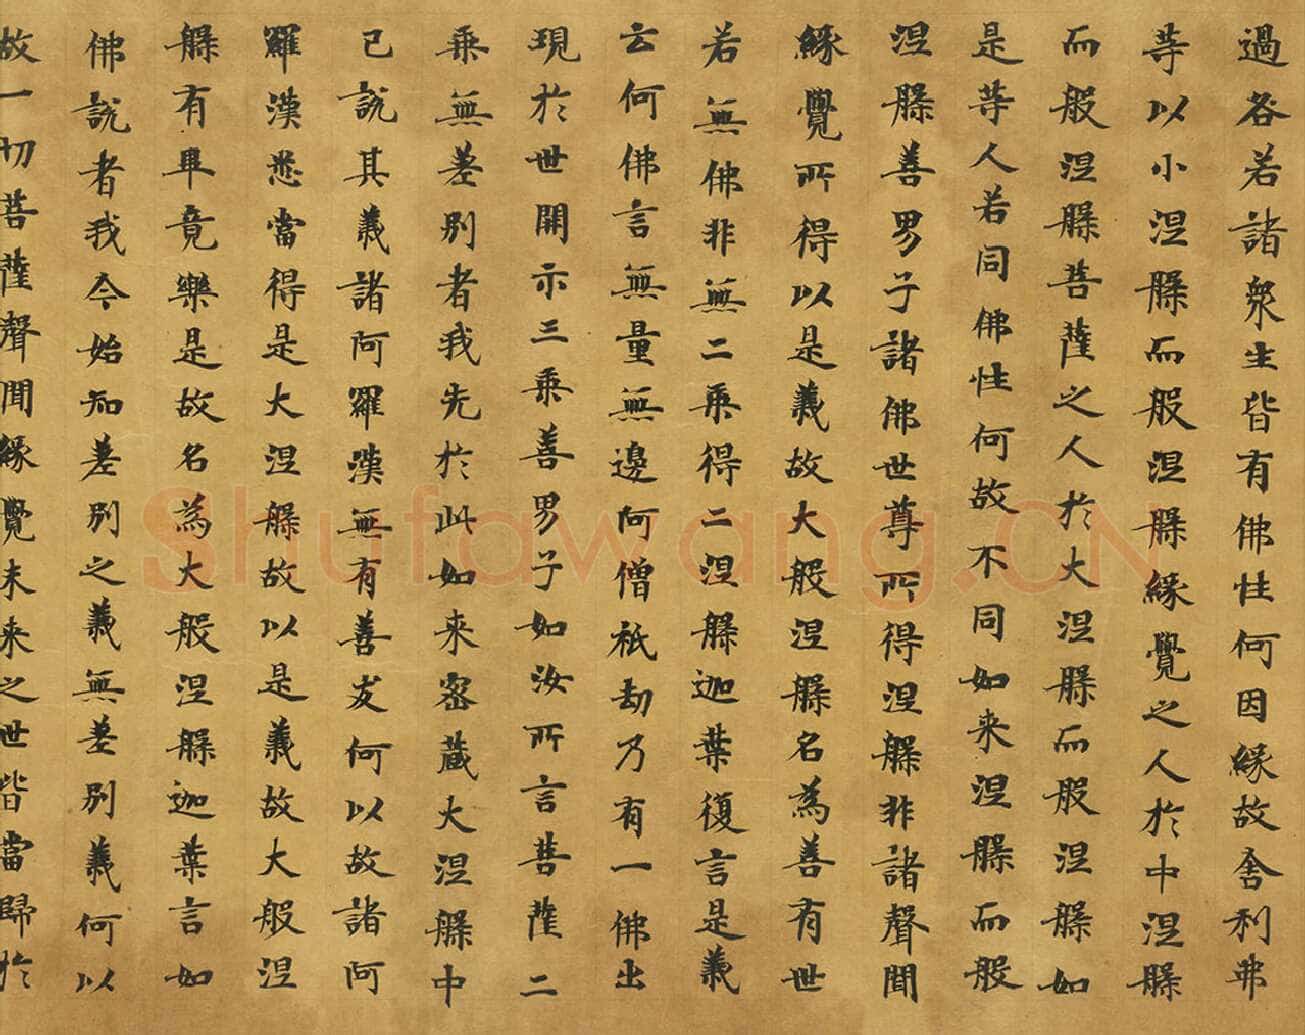 過咎若諸衆生皆有佛性何因緣故舍利弗
等以小涅槃而般涅槃緣覺之人於中涅槃
而般涅槃菩薩之人於大涅槃而般涅槃如
是等人若同佛性何故不同如来涅槃而般
涅槃善男子諸佛世尊所得涅槃非諸聲聞
緣覺所得以是義故大般涅槃名為善有世
若無佛非無二乘得二涅槃迦葉復言是義
云何佛言無量無邊阿僧祇劫乃有一佛出
現於世開示三乘善男子如汝所言菩薩二
乘無差別者我先於此如来密藏大涅槃中
已說其義諸阿羅漢無有善友何以故諸阿
羅漢悉當得是大涅槃故以是義故大般涅
槃有畢竟樂是故名為大般涅槃迦葉言如
佛說者我今始知差別之義無差別義何以
故一切菩薩聲聞緣覺未来之世皆當歸於
Shufawang.CN